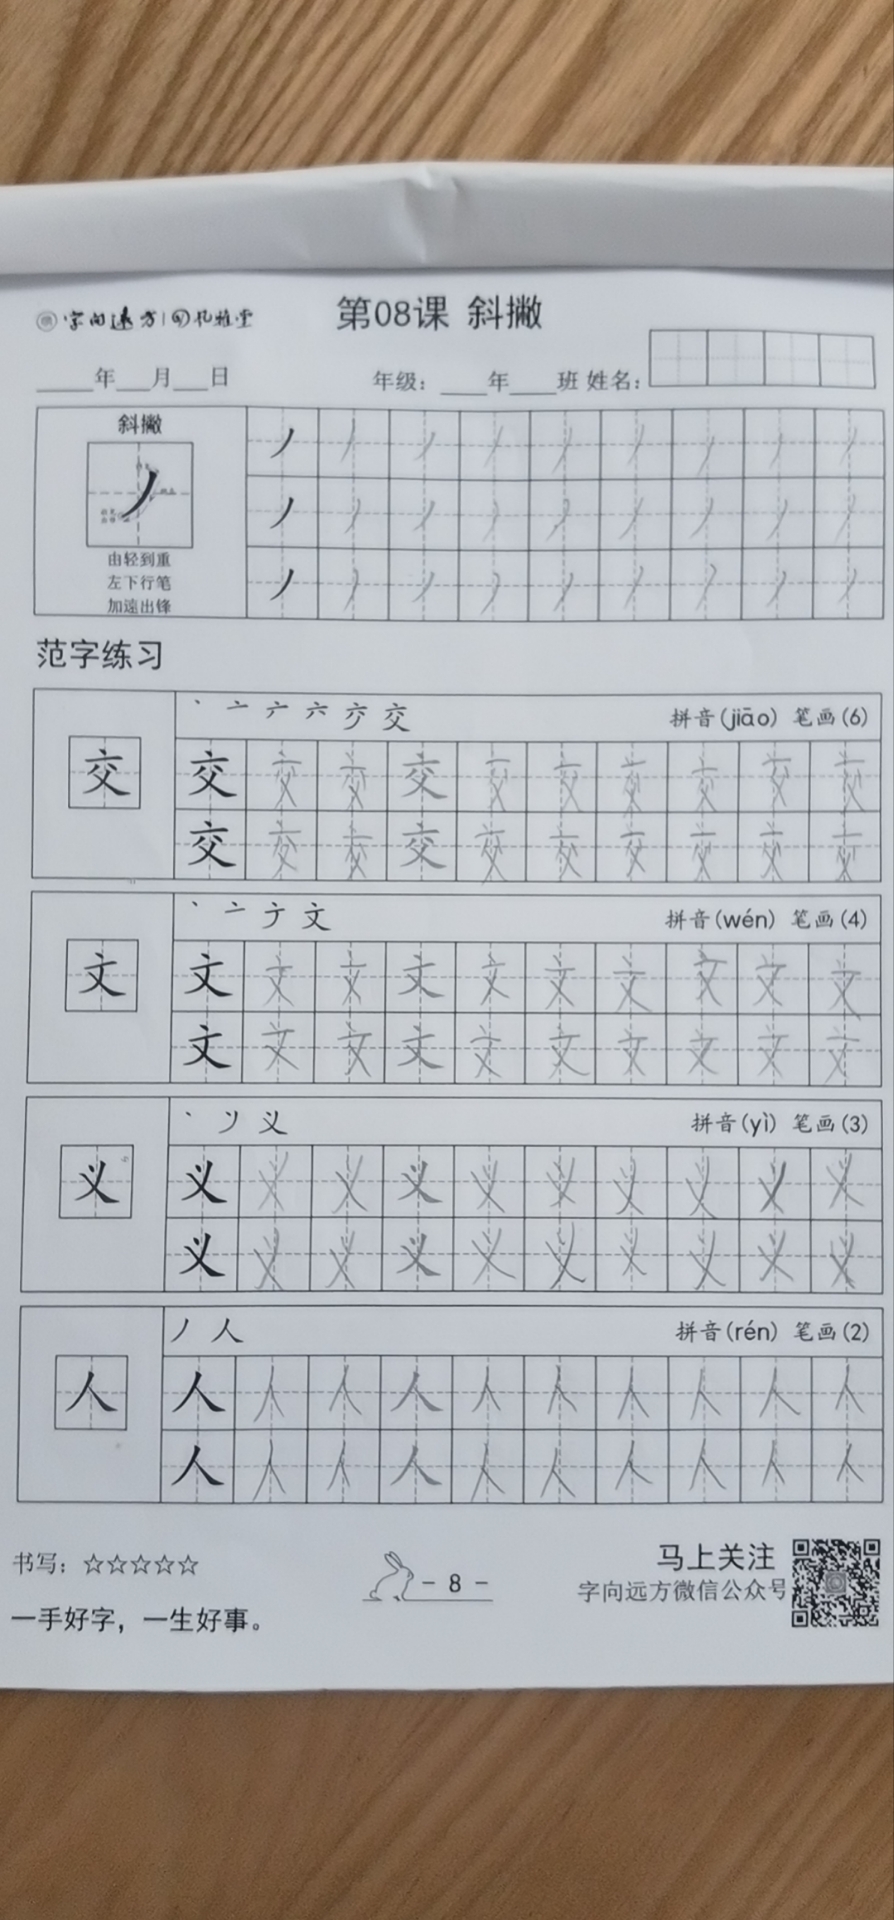 字向远方 | 孔雅堂
第08课 斜撇
____年___月___日 年级：____年____班 姓名：
斜撇
由轻到重
左下行笔
加速出锋
丿 丿 丿 丿 丿 丿 丿 丿 丿
丿 丿 丿 丿 丿 丿 丿 丿 丿
丿 丿 丿 丿 丿 丿 丿 丿 丿
范字练习
交 拼音(jiāo) 笔画(6)
交
交 交 交 交 交 交 交 交 交 交
交 交 交 交 交 交 交 交 交 交
文 拼音(wén) 笔画(4)
文
文 文 文 文 文 文 文 文 文 文
文 文 文 文 文 文 文 文 文 文
义 拼音(yì) 笔画(3)
义
义 义 义 义 义 义 义 义 义 义
义 义 义 义 义 义 义 义 义 义
丿 人 拼音(rén) 笔画(2)
人
人 人 人 人 人 人 人 人 人 人
人 人 人 人 人 人 人 人 人 人
书写：☆☆☆☆☆
一手好字，一生好事。
- 8 -
马上关注
字向远方微信公众号